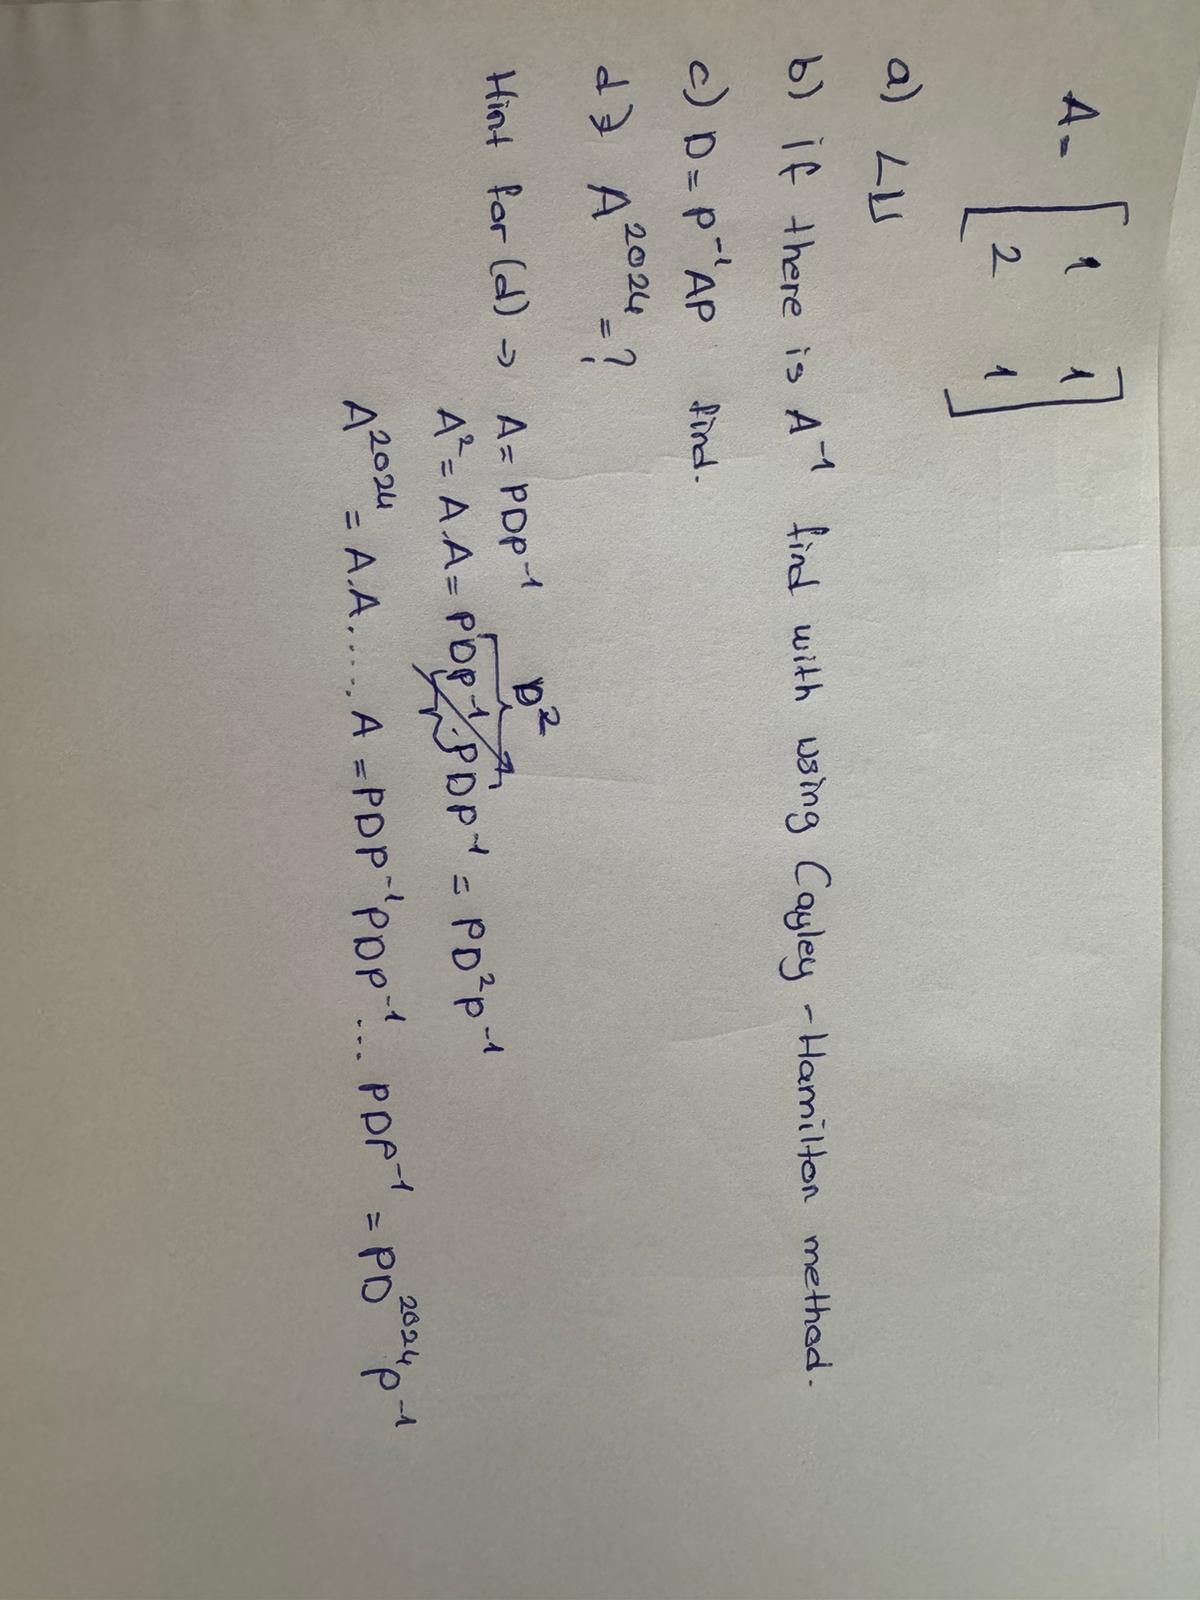 A = [ 1 1
2 1 ]
a) LU
b) if there is A⁻¹ find with using Cayley-Hamilton method.
c) D = P⁻¹AP find.
d) A²⁰²⁴ = ?
D²
Hint for (d) → A = PDP⁻¹
A² = A.A = PDP⁻¹.PDP⁻¹ = PD²P⁻¹
A²⁰²⁴ = A.A.....A = PDP⁻¹PDP⁻¹... PDP⁻¹ = PD²⁰²⁴P⁻¹